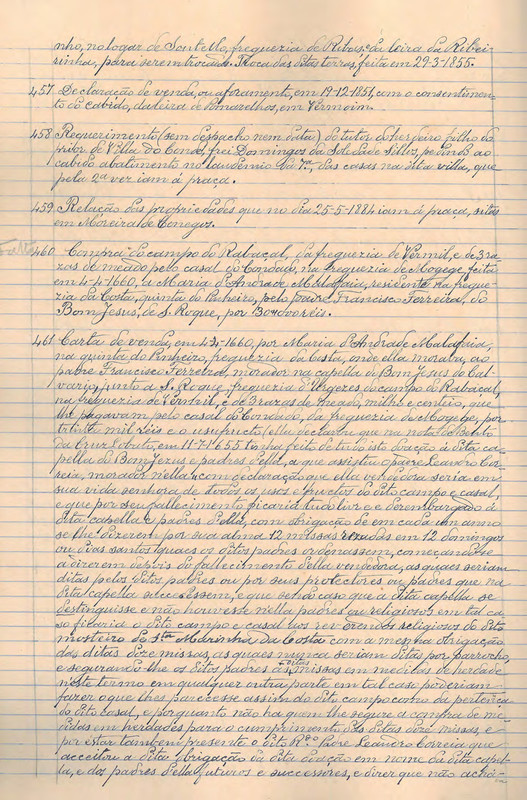 nho, no logar de Sontello, freguezia de Ribas, da leira da Ribei-
rinha, para serem trocados. Troca das ditas terras, feita em 29-3-1855.
457 Declaração de venda, ou aforamento, em 19-12-1851, com o consentimen-
to do cabido, da leira de Amarelhos, em Vermoim.
458 Requerimento (sem despacho nem data) do tutor do herdeiro filho do
de Villa do Conde, frei Domingos da Soledade Sillos, pedindo ao
cabido abatimento no laudemio da 7ª, das casas na dita villa, que
pela 2ª vez iam á praça.
459 Relação das propriedades que no dia 25-5-1884 iam á praça, sitas
em Moreira de Conegos.
460 Compra do campo do Rabaçal, da freguezia de Vermil, e de 3 ra-
zas de meado pelo casal do Condado, na freguezia de Mogege, feita
em 4-4-1660, a Maria d'Andrade Malafaia, residente na fregue-
zia da Costa, quinta do Pinheiro, pelo padre Francisco Ferreira, do
Bom Jesus, de S. Roque, por 30#000 réis.
461 Carta de venda, em 4-4-1660, por Maria d'Andrade Malafaia,
na quinta do Pinheiro, freguezia da Costa, onde ella morava, ao
padre Francisco Ferreira, morador na capella de Bom Jesus do Cal-
vario, junto a S. Roque, freguezia d'Urgezes do campo do Rabaçal,
na freguezia de Vermil, e de 3 razas de meado, milho e centeio, que
lhe pagavam pelo casal do Condado, da freguezia de Mogege, por
trinta mil réis e o usufructo; ella declara que na nota de Bento
da Cruz Lobato, em 11-7-1655 tinha feito de tudo isto doação á dita ca-
pella do Bom Jesus e padres d'ella, a que assistiu o padre Leandro Cor-
reia, morador n'ella, com declaração que ella vendedora seria em
sua vida senhora de todos os usos e fructos do dito campo e casal,
e que por seu fallecimento ficaria tudo livre e desembargado á
dita capella e padres d'ella, com obrigação de em cada um anno
se lhe dizerem por sua alma 12 missas rezadas em 12 domingos
ou dias santos quaes os ditos padres ordenassem, começando-se
a dizerem depois do fallecimento d'ella vendedora, as quaes seriam
ditas pelos ditos padres ou por seus protectores ou padres que na
dita capella succedessem, e que sendo caso que a dita capella se
destinguisse e não houvesse n'ella padres ou religiosos em tal ca-
so ficaria o dito campo e casal aos reverendos religiosos do dito
mosteiro de Stª Marinha da Costa com a mesma obrigação
das ditas doze missas, as quaes nunca seriam ditas por parrocho,
e segurando-lhe os ditos padres as ditas missas em medidas d'herdade
n'este termo em qualquer outra parte em tal caso poderiam
fazer o que lhes parecesse assim do dito campo como da pertença
do dito casal, e por quanto não ha quem lhe segure a compra de me-
didas em herdades para o cumprimento das ditas doze missas, e
por estar tambem presente o dito R.º Padre Leandro Correia que
acceitou a dita obrigação da dita doação em nome da dita capel-
la, e dos padres d'ella futuros e successores, e dizer que não acha-